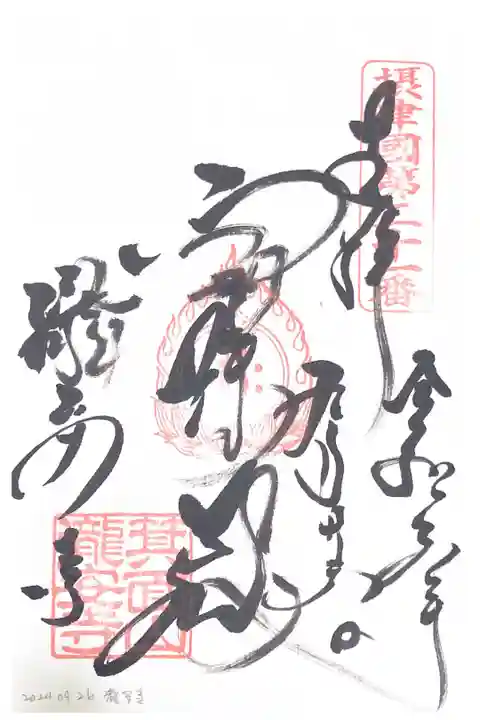 摂津國第二十一番
奉拝
令和六年
九月廿六日
瀧安寺
箕面山
瀧安寺
2024 09 26 瀧安寺